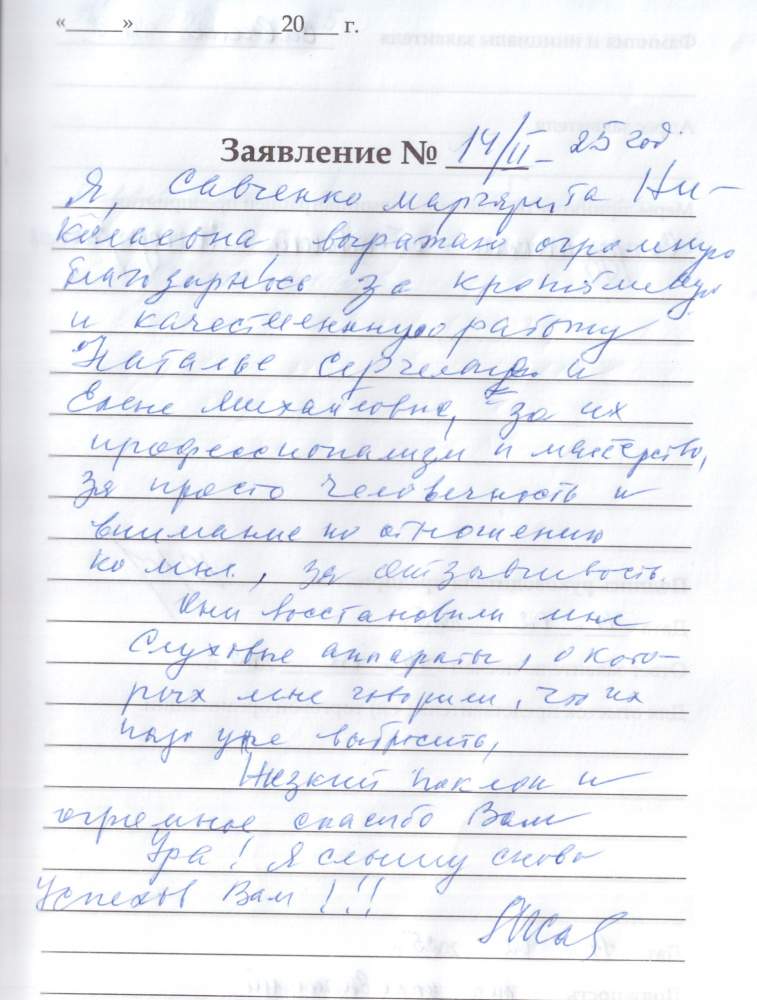 «____»____________20___ г.
Заявление № 14/II- 25 год
Я, Савченко Маргарита Ни-
колаевна, выражаю огромную
благодарность за кропотливую
и качественную работу
Наталье Сергеевне и
Елене Михайловне, за их
профессионализм и мастерство,
за просто человечность и
внимание по отношению
ко мне, за отзывчивость
Они восстановили мне
Слуховые аппараты, о кото-
рых мне говорили, что их
надо уже выбросить,
Низкий поклон и
огромное спасибо Вам
Ура! Я слышу снова
Успехов Вам!!!